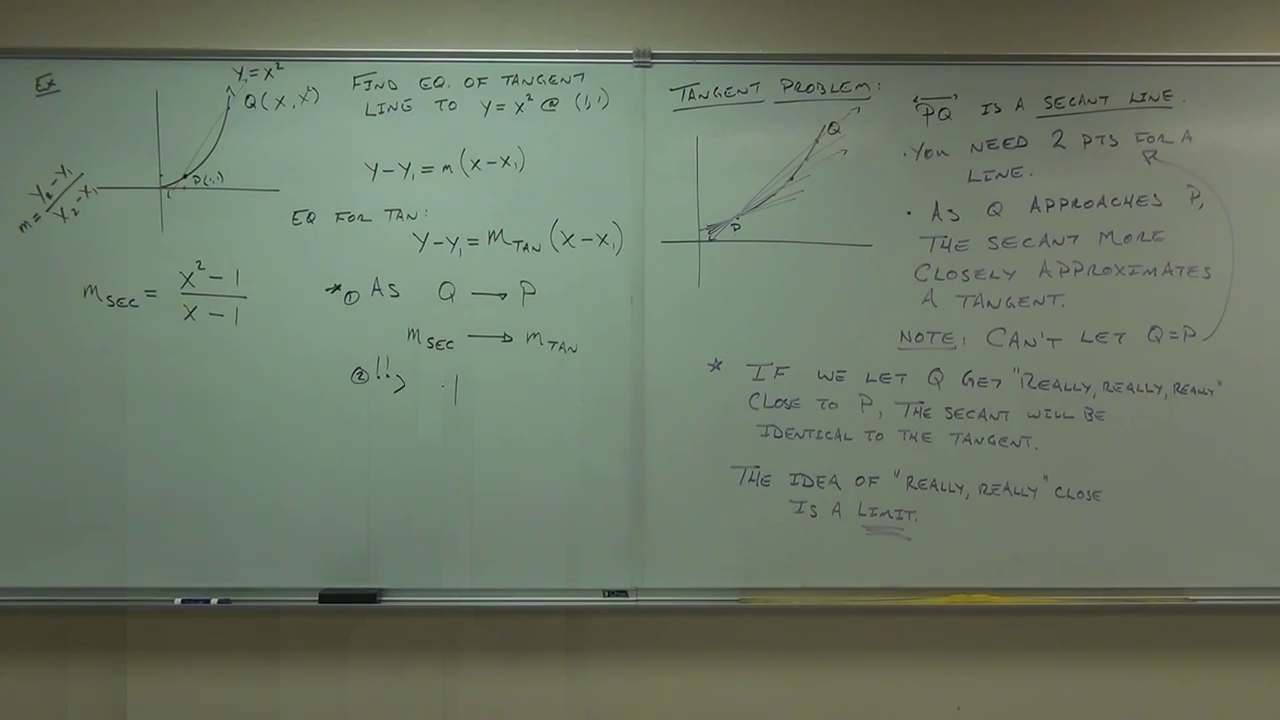 Ex
y = x²
Q(x, x²)
P(1,1)
m = y₂ - y₁ / x₂ - x₁
FIND EQ. OF TANGENT
LINE TO y = x² @ (1,1)
y - y₁ = m(x - x₁)
EQ FOR TAN:
y - y₁ = m_TAN (x - x₁)
m_SEC = x² - 1 / x - 1
* ① AS Q → P
m_SEC → m_TAN
② !!
TANGENT PROBLEM:
Q
P
PQ IS A SECANT LINE.
· YOU NEED 2 PTS FOR A
LINE.
· AS Q APPROACHES P,
THE SECANT MORE
CLOSELY APPROXIMATES
A TANGENT.
NOTE: CAN'T LET Q=P
* IF WE LET Q GET "REALLY, REALLY, REALLY"
CLOSE TO P, THE SECANT WILL BE
IDENTICAL TO THE TANGENT.
THE IDEA OF "REALLY, REALLY" CLOSE
IS A LIMIT.